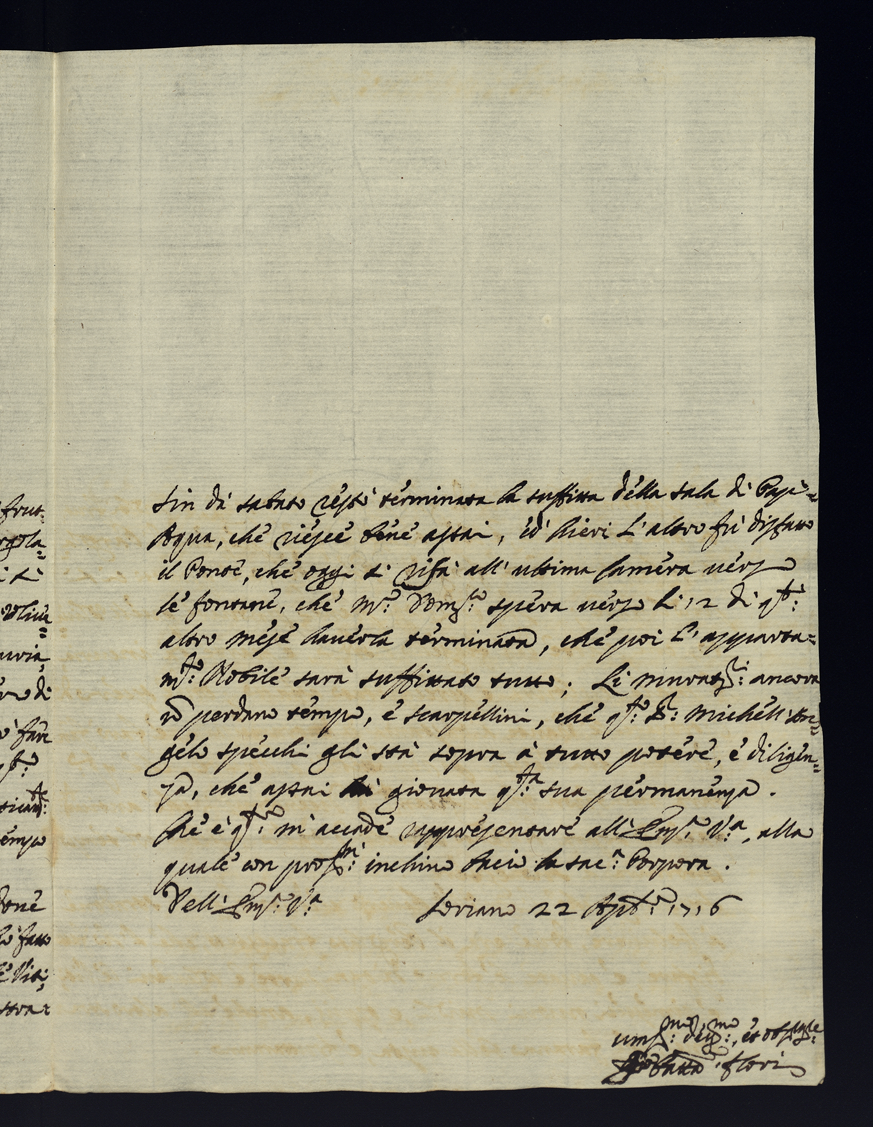 frut
rgola=
i si
uria,
fare
tempo
Sin da sabato restò terminata la suffitta della sala di Pape=
Aqua, che riesce bene assai, ed hieri l'altro fù disfatto
il Ponte, che oggi si rifà all'ultima Camera verso
le fontane, che Mr. spera verso li 12 di qto:
altro mese haverla terminata, che poi l'apparta=
mto: Nobile sarà suffittato tutto; Li ancora
perdano tempo, è scarpellini, che qto: Sr: Micheli An=
gelo specchi gli stà sopra à tutto potere, è diligen=
za, che assai giovata qta sua permanenza.
Che è qto: m'accade rappresentare all'Emza: Va, alla
quale con profma: inchino bacio la sacra Porpora.
Dell'Emza: Va Soriano 22 1716
umilmo: devmo:, et
Batta Flori